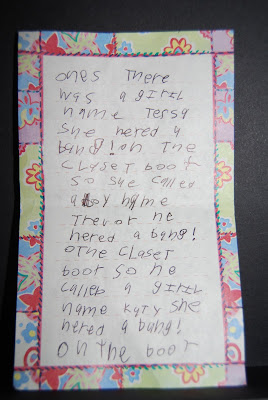 ones There
was a giril
name Tersa
she hered a
bang! on The
claset boot
so she called
a boy name
Trevor he
hered a bang!
othe claset
boot so he
calleb a giril
name katy she
hered a bang!
on the boot